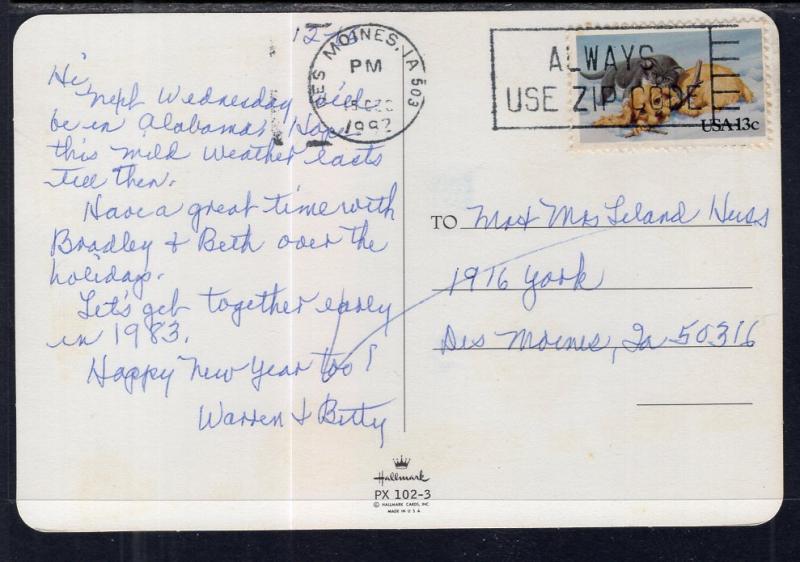 12-
Hi,
Next Wednesday we'll
be in Alabama. Hope
this mild weather lasts
till then.
Have a great time with
Bradley & Beth over the
holidays.
Let's get together early
in 1983.
Happy New Year too!
Warren & Betty
DES MOINES, IA 503
PM
DEC
1982
ALWAYS
USE ZIP CODE
USA 13c
TO Mr & Mrs Leland Huss
1976 York
Des Moines, Ia 50316
Hallmark
PX 102-3
© HALLMARK CARDS, INC.
MADE IN U.S.A.